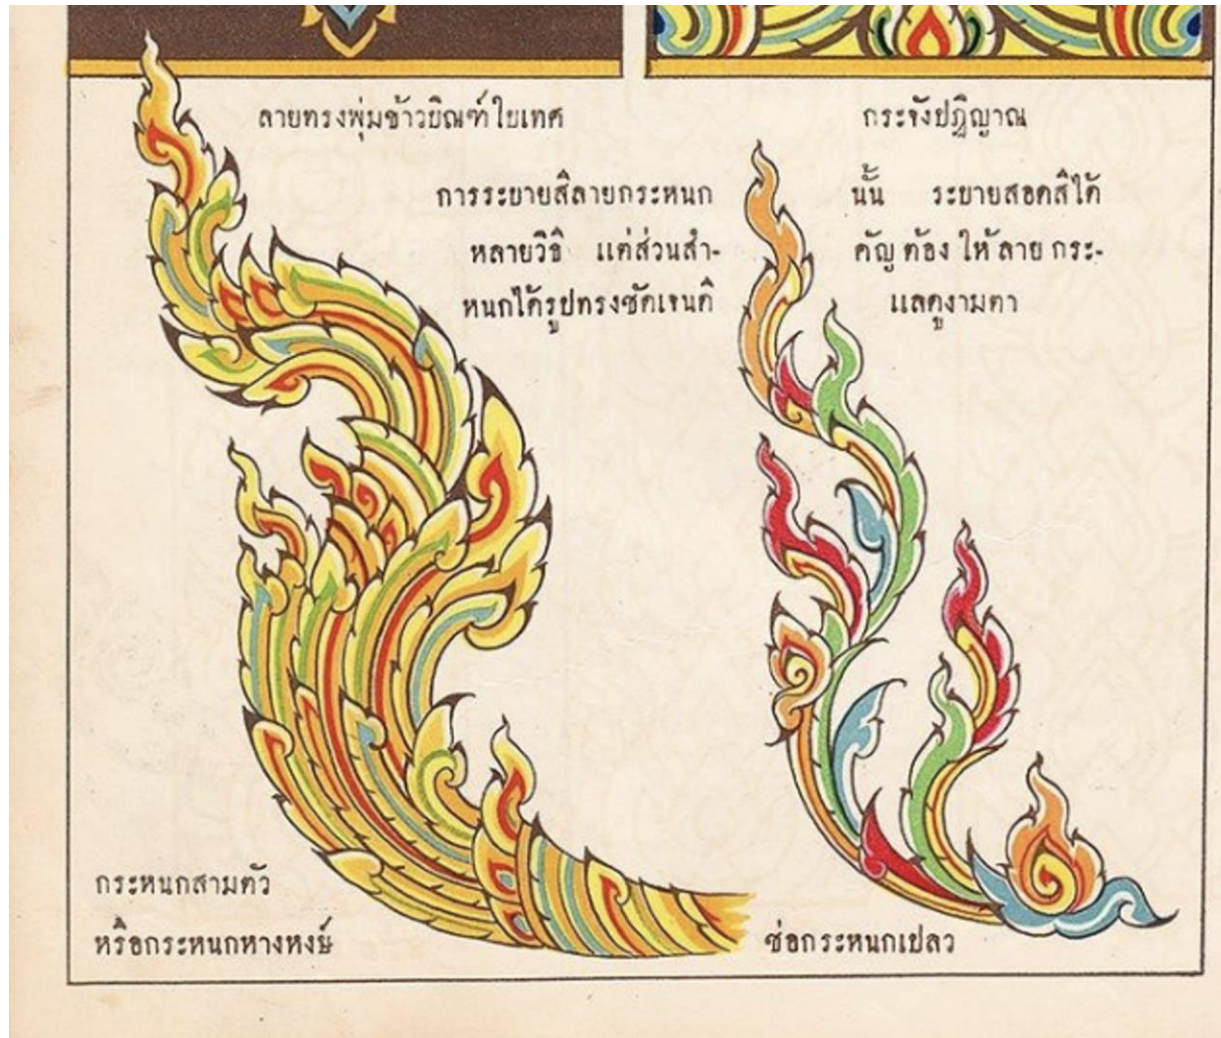 ลายทรงพุ่มข้าวบิณฑ์ใบเทศ
กระจังปฏิญาณ
การระบายสีลายกระหนก นั้น ระบายสอดสีได้
หลายวิธี แต่ส่วนสำ- คัญ ต้อง ให้ ลาย กระ-
หนกได้รูปทรงชัดเจนดี แลดูงามตา
กระหนกสามตัว
หรือกระหนกหางหงษ์
ช่อกระหนกเปลว